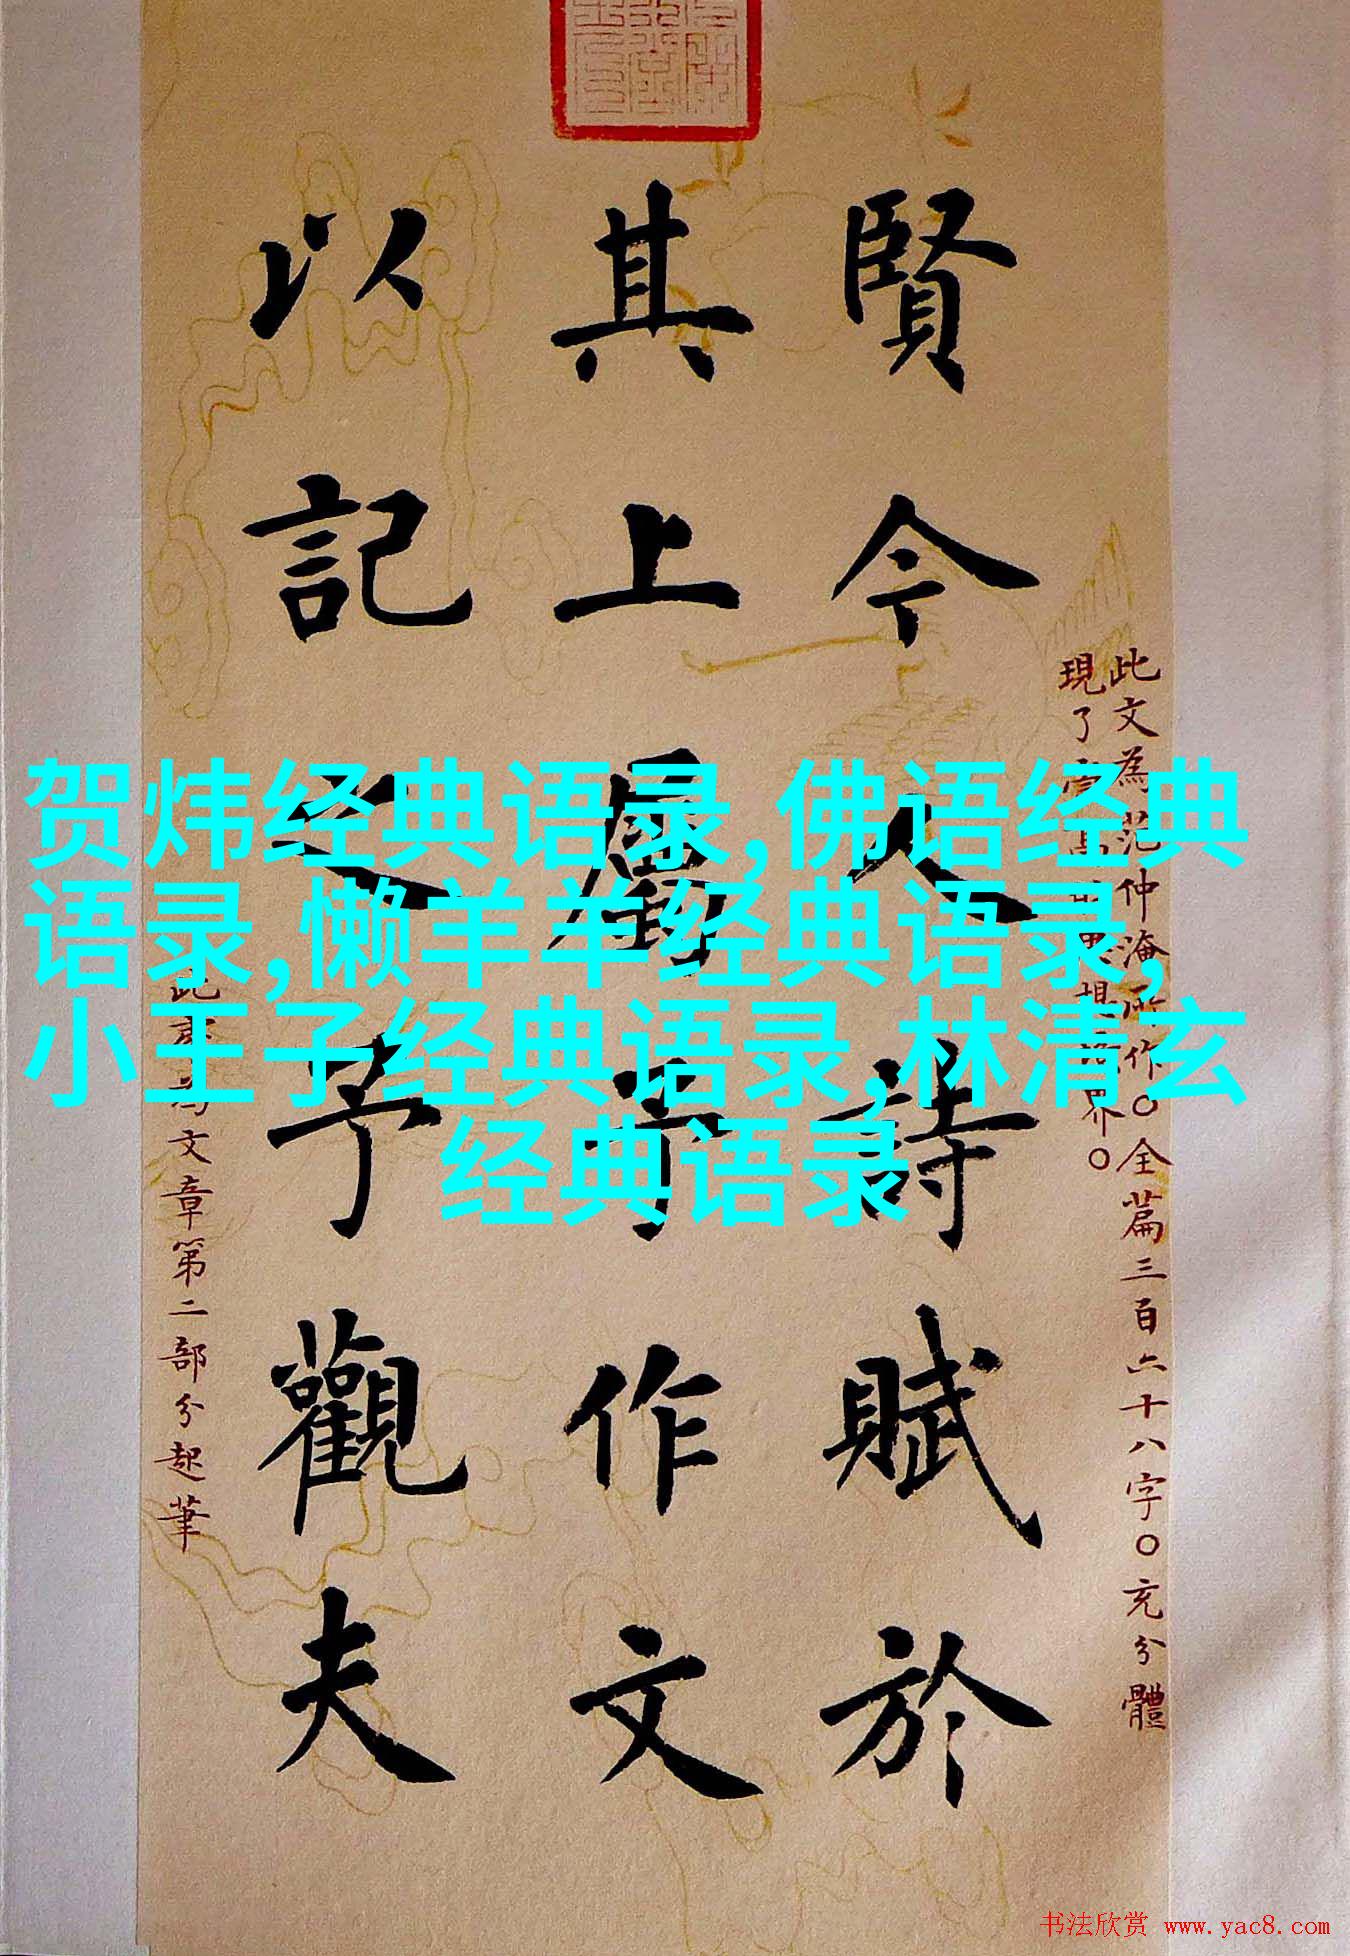 此文為范仲淹所作。全篇三百六十八字。充分體
現了境界。
賢今人詩賦於
其上屬予作文
以記之予觀夫
此文章第二部分起筆
贺炜经典语录,佛语经典
语录,懒羊羊经典语录,
小王子经典语录,林清玄
经典语录
书法欣赏 www.yac8.com